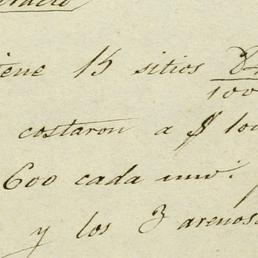 iene 15 sitios
100
costaron a $ 100
600 cada uno.
y los 3 arenos